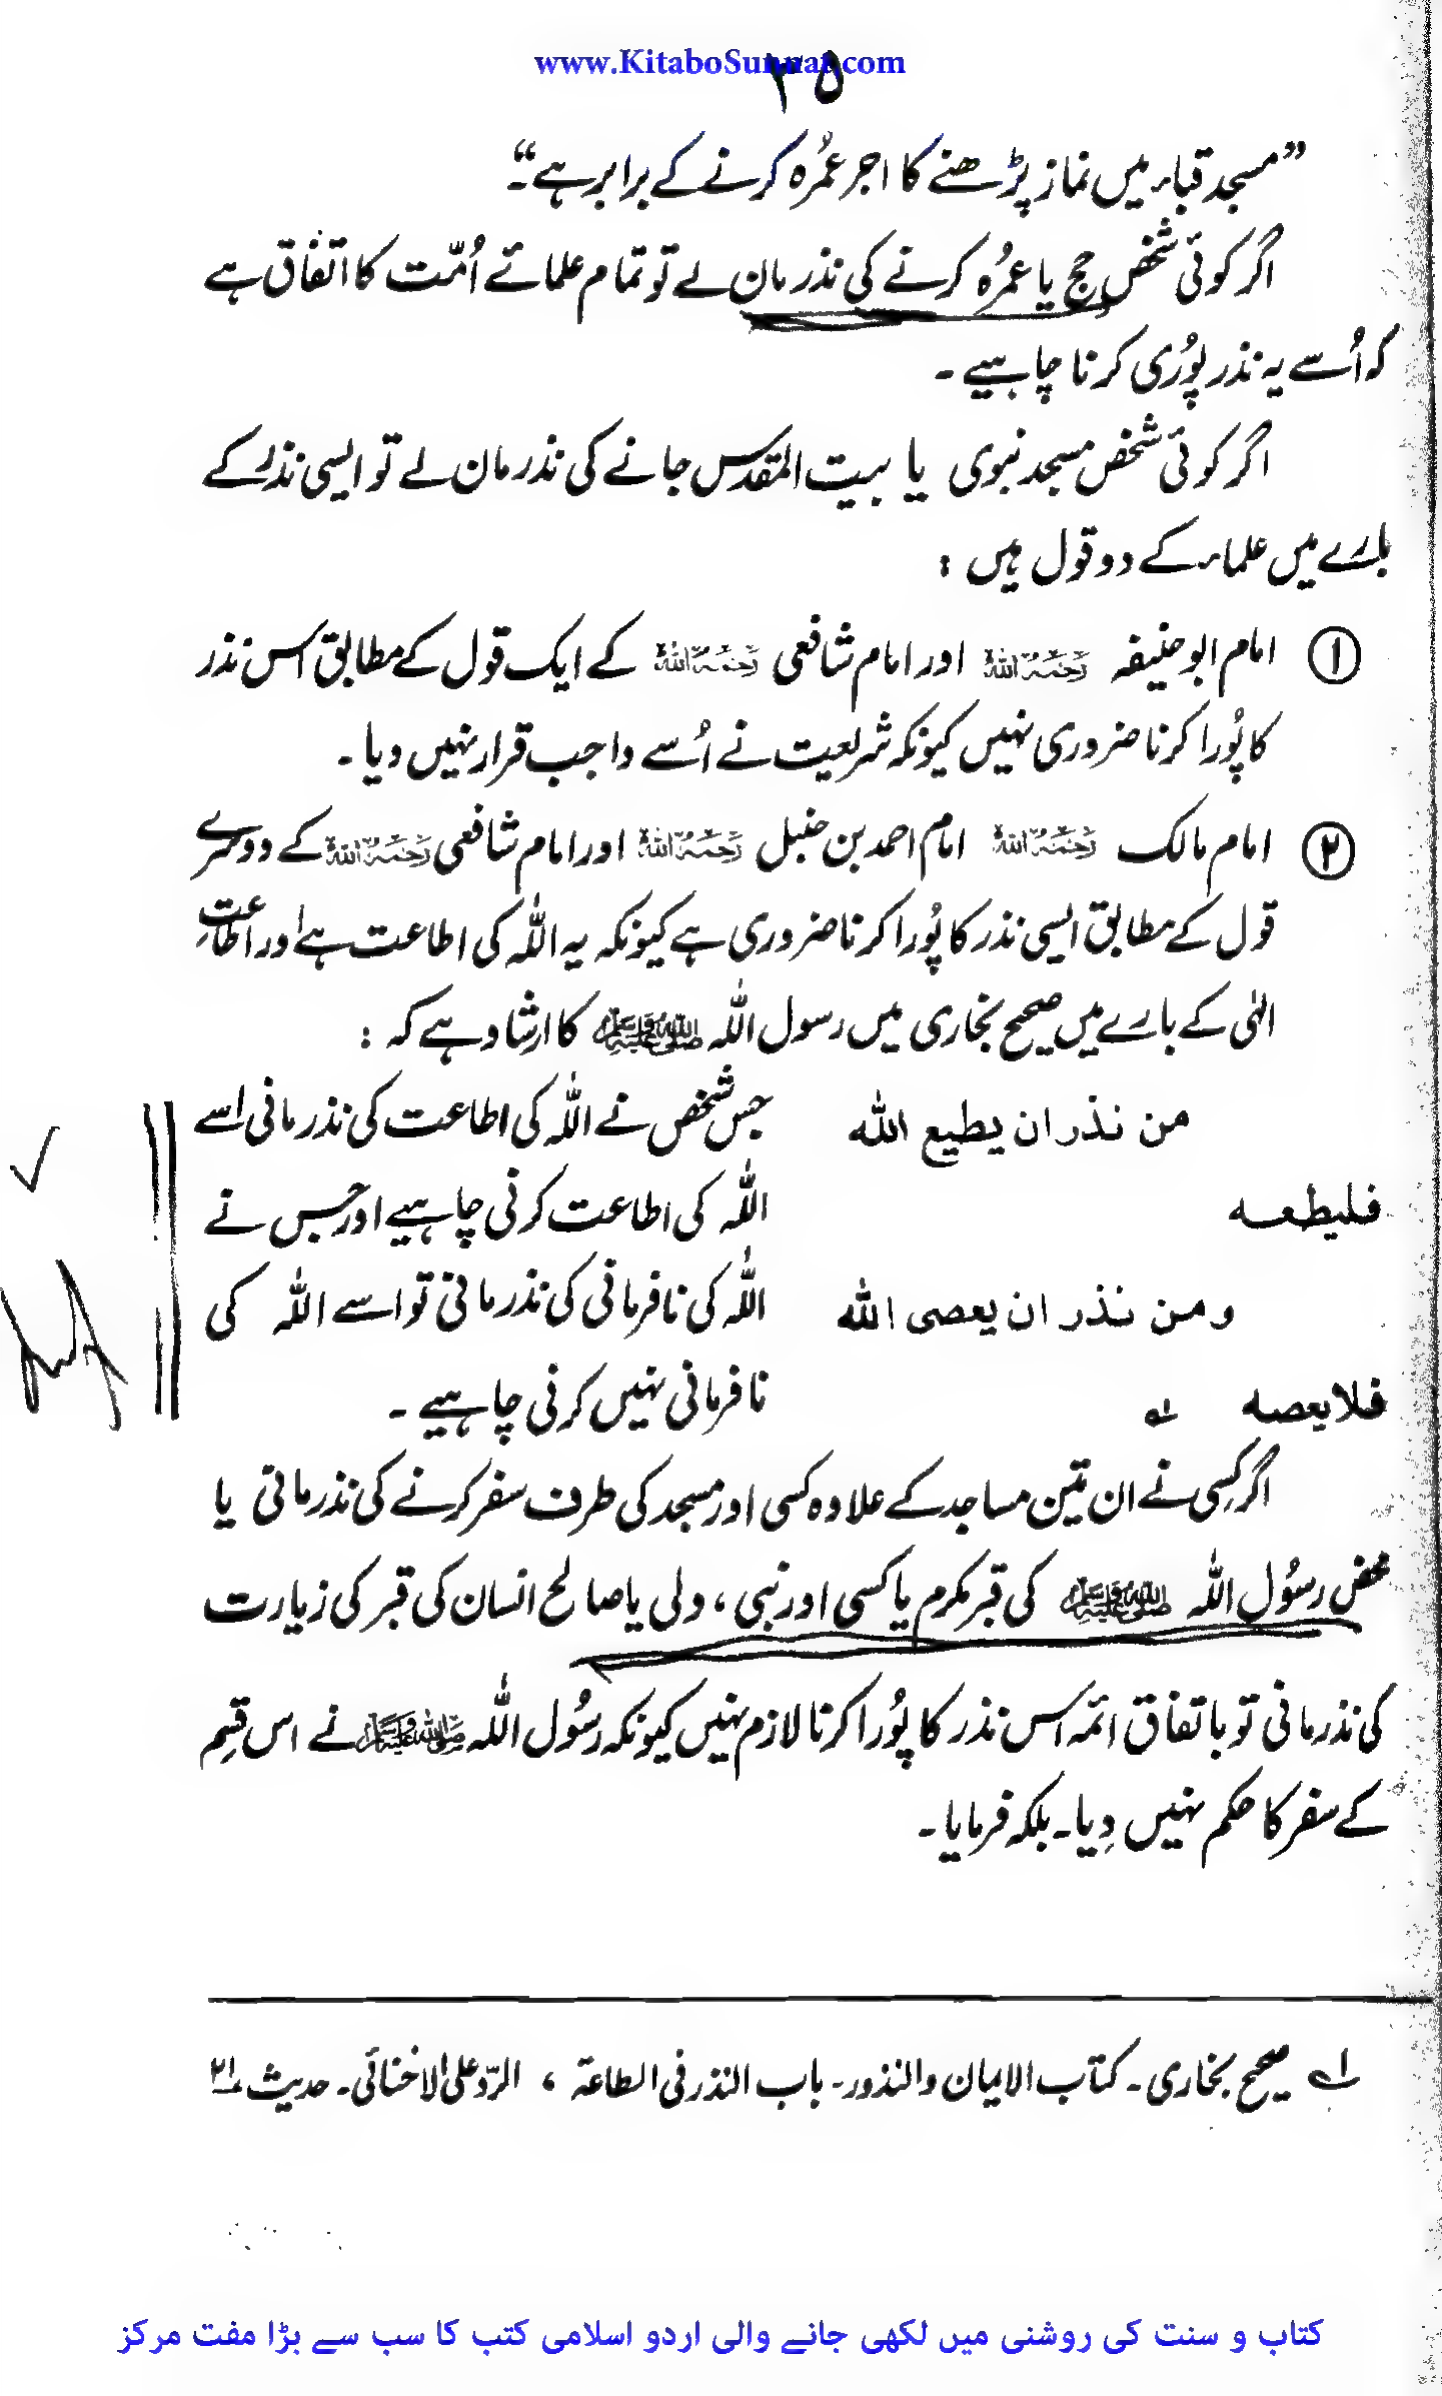 www.KitaboSunnat.com
۳۵
”مسجد قباء میں نماز پڑھنے کا اجر عمُرہ کرنے کے برابر ہے“۔
اگر کوئی شخص حج یا عمُرہ کرنے کی نذر مان لے تو تمام علمائے اُمّت کا اتفاق ہے
کہ اُسے یہ نذر پوُری کرنا چاہیے ۔
اگر کوئی شخص مسجد نبوی یا بیت المقدس جانے کی نذر مان لے تو ایسی نذر کے
بارے میں علماء کے دو قول ہیں :
① امام ابو حنیفہ رَحِمَہُ اللّٰہُ اور امام شافعی رَحِمَہُ اللّٰہُ کے ایک قول کے مطابق اس نذر
کا پوُرا کرنا ضروری نہیں کیونکہ شریعت نے اُسے واجب قرار نہیں دیا ۔
② امام مالک رَحِمَہُ اللّٰہُ امام احمد بن حنبل رَحِمَہُ اللّٰہُ اور امام شافعی رَحِمَہُ اللّٰہُ کے دوسرے
قول کے مطابق ایسی نذر کا پوُرا کرنا ضروری ہے کیونکہ یہ اللّٰہ کی اطاعت ہے اور اطاعتِ
الٰہی کے بارے میں صحیح بخاری میں رسول اللّٰہ ﷺ کا ارشاد ہے کہ :
من نذر ان یطیع اللّٰہ جس شخص نے اللّٰہ کی اطاعت کی نذر مانی اسے
فلیطعہ اللّٰہ کی اطاعت کرنی چاہیے اور جس نے
ومن نذر ان یعصی اللّٰہ اللّٰہ کی نافرمانی کی نذر مانی تو اسے اللّٰہ کی
فلا یعصہ ؂۱ نافرمانی نہیں کرنی چاہیے ۔
اگر کِسی نے ان تین مساجد کے علاوہ کسی اور مسجد کی طرف سفر کرنے کی نذر مانی یا
محض رسوُل اللّٰہ ﷺ کی قبر مکرم یا کسی اور نبی ، ولی یا صالح انسان کی قبر کی زیارت
کی نذر مانی تو باتفاق ائمہ اس نذر کا پوُرا کرنا لازم نہیں کیونکہ رسوُل اللّٰہ ﷺ نے اس قسِم
کے سفر کا حکم نہیں دِیا۔ بلکہ فرمایا ۔
؂۱ صحیح بخاری ۔ کتاب الایمان والنذور۔ باب النذر فی الطاعۃ ، الرّد علی الاخنائی۔ حدیث ؂۲۱
کتاب و سنت کی روشنی میں لکھی جانے والی اردو اسلامی کتب کا سب سے بڑا مفت مرکز